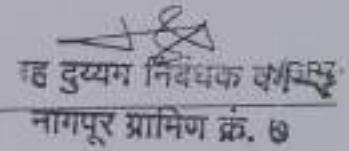 ह दुय्यम निबंधक
नागपूर ग्रामिण क्रं. ७